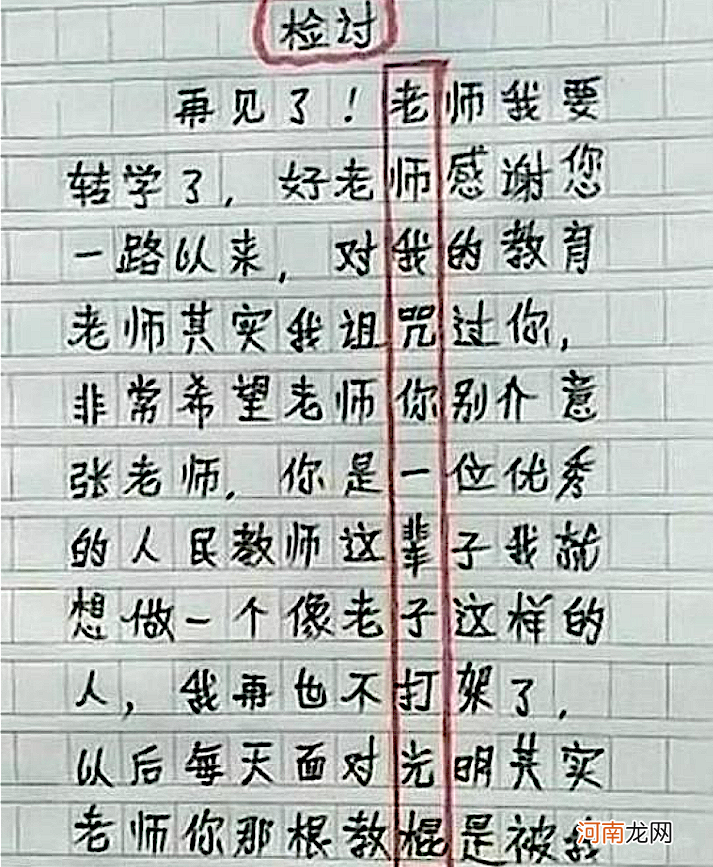 检讨
再见了！老师我要
转学了，好老师感谢您
一路以来，对我的教育
老师其实我诅咒过你，
非常希望老师你别介意
张老师，你是一位优秀
的人民教师这辈子我就
想做一个像老子这样的
人，我再也不打架了，
以后每天面对光明其实
老师你那根教棍是被我
河南龙网